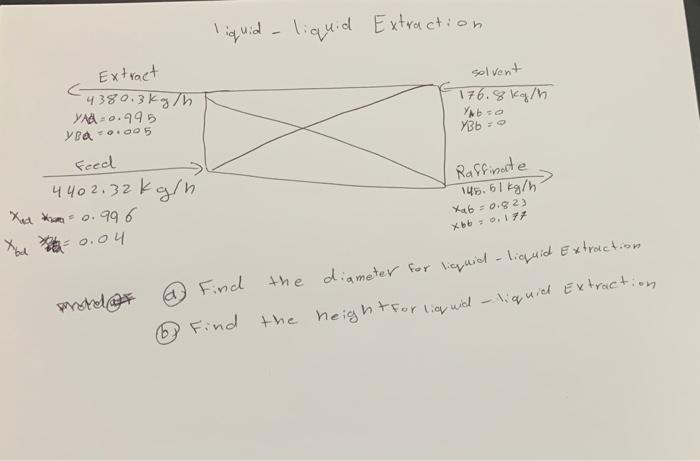 liquid - liquid Extraction
Extract
4380.3kg/h
yAa=0.995
yBa=0.005
solvent
176.8 kg/h
yAb=0
yBb=0
Feed
4402.32 kg/h
xad = 0.996
xbd = 0.04
Raffinate
145.61 kg/h
xab = 0.823
xbb = 0.177
a) Find the diameter for liquid - liquid Extraction
b) Find the height for liquid - liquid Extraction